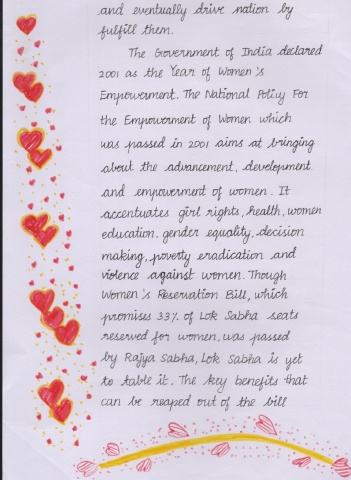 and eventually drive nation by
fulfill them.
The Government of India declared
2001 as the Year of Women's
Empowerment. The National Policy For
the Empowerment of Women which
was passed in 2001 aims at bringing
about the advancement, development
and empowerment of women. It
accentuates girl rights, health, women
education, gender equality, decision
making, poverty eradication and
violence against women. Though
Women's Reservation Bill, which
promises 33% of Lok Sabha seats
reserved for women, was passed
by Rajya Sabha, Lok Sabha is yet
to table it. The key benefits that
can be reaped out of the bill